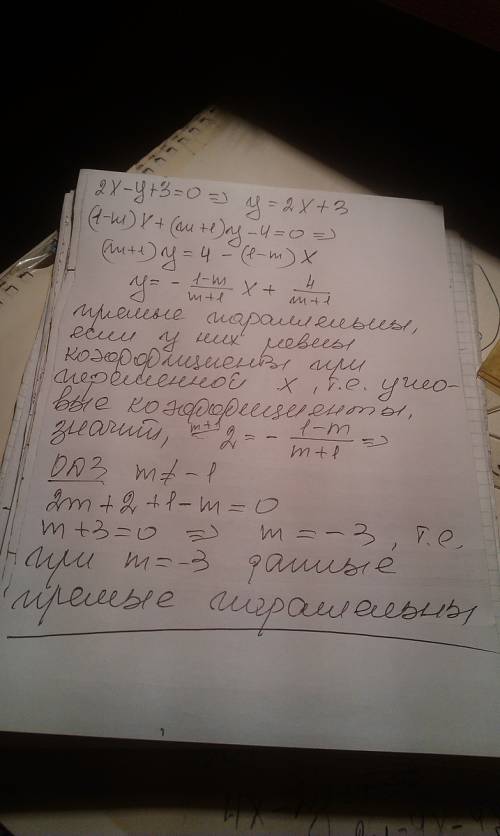 2x-y+3=0 ⇒ y=2x+3
(1-m)x+(m+1)y-4=0 ⇒
(m+1)y=4-(1-m)x
y=-\frac{1-m}{m+1}x+\frac{4}{m+1}
прямые параллельны,
если у них равны
коэффициенты при
переменной x, т.е. угло-
вые коэффициенты,
значит, m+1 2=-\frac{1-m}{m+1} ⇒
ОДЗ m≠-1
2m+2+1-m=0
m+3=0 ⇒ m=-3, т.е.
при m=-3 данные
прямые параллельны